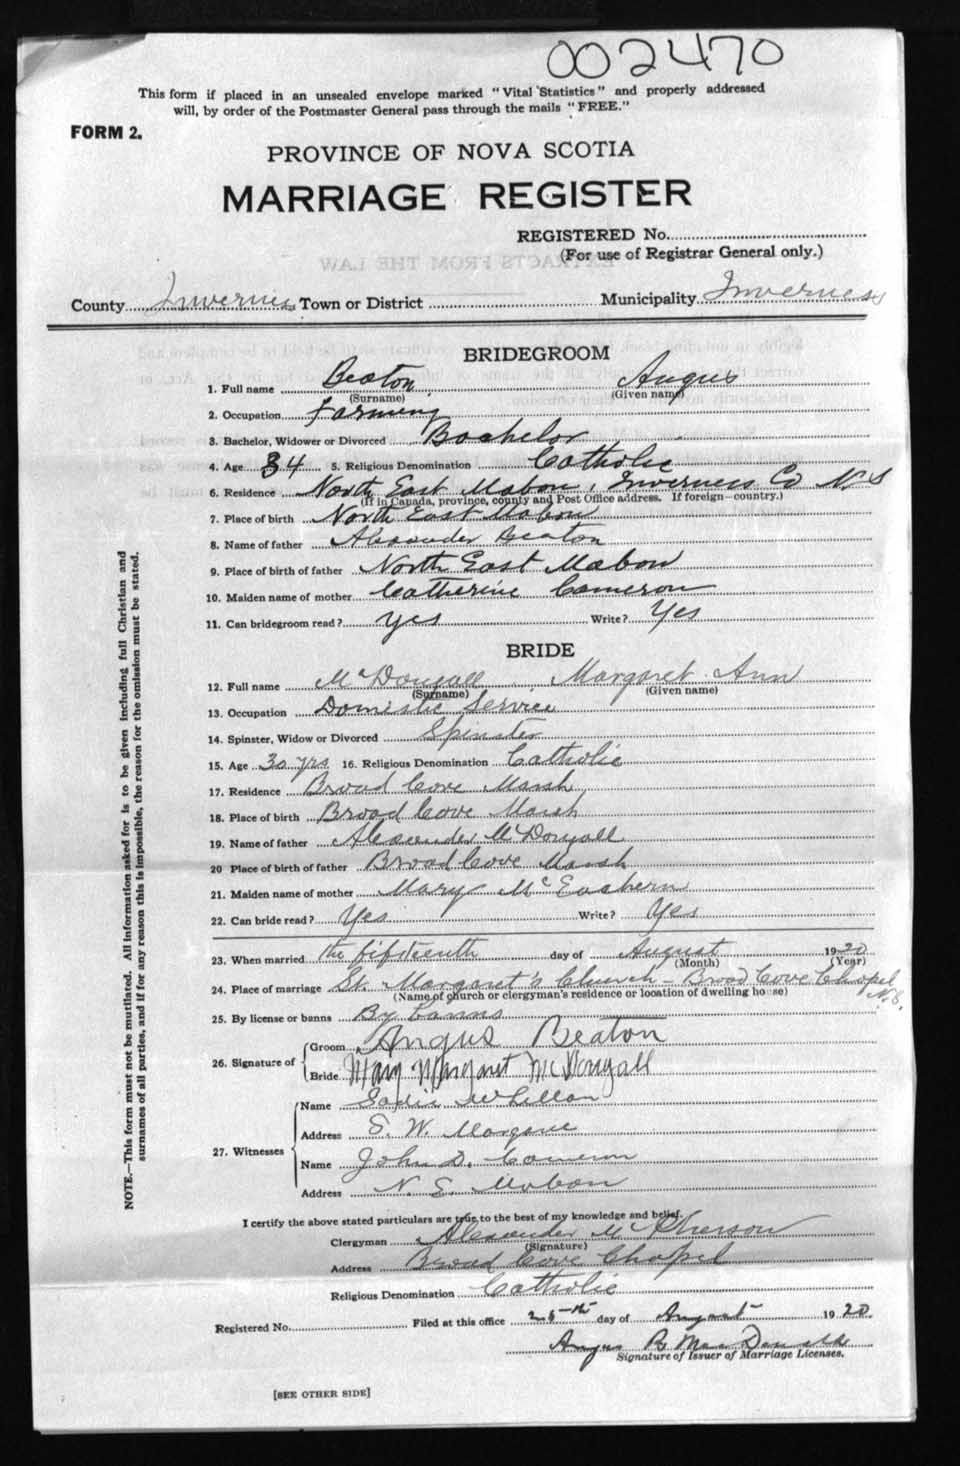 002470
This form if placed in an unsealed envelope marked "Vital Statistics" and properly addressed
will, by order of the Postmaster General pass through the mails "FREE."
FORM 2.
PROVINCE OF NOVA SCOTIA
MARRIAGE REGISTER
REGISTERED No.
(For use of Registrar General only.)
EXTRACTS FROM THE LAW
County Inverness Town or District Municipality Inverness
BRIDEGROOM
1. Full name Beaton Angus
(Surname) (Given name)
2. Occupation Farming
3. Bachelor, Widower or Divorced Bachelor
4. Age 34 5. Religious Denomination Catholic
6. Residence North East Mabou, Inverness Co N.S
(If in Canada, province, county and Post Office address. If foreign—country.)
7. Place of birth North East Mabou
8. Name of father Alexander Beaton
9. Place of birth of father North East Mabou
10. Maiden name of mother Catherine Cameron
11. Can bridegroom read? yes Write? Yes
BRIDE
12. Full name McDougall Margaret Ann
(Surname) (Given name)
13. Occupation Domestic Service
14. Spinster, Widow or Divorced Spinster
15. Age 30 yrs 16. Religious Denomination Catholic
17. Residence Broad Cove Marsh
18. Place of birth Broad Cove Marsh
19. Name of father Alexander McDougall
20 Place of birth of father Broad Cove Marsh
21. Maiden name of mother Mary McEachern
22. Can bride read? Yes Write? Yes
23. When married the fifteenth day of August 1920
(Month) (Year)
24. Place of marriage St. Margaret's Church Broad Cove Chapel
N.S.
(Name of church or clergyman's residence or location of dwelling house)
25. By license or banns By banns
26. Signature of
Groom Angus Beaton
Bride Mary Margaret McDougall
27. Witnesses
Name Sadie
Address S. W. Margaree
Name John D. Cameron
Address N. E. Mabou
I certify the above stated particulars are true to the best of my knowledge and belief.
Clergyman Alexander McPherson
(Signature)
Address Broad Cove Chapel
Religious Denomination Catholic
Registered No. Filed at this office 25th day of August 1920
Angus B MacDonald
Signature of Issuer of Marriage Licenses.
[SEE OTHER SIDE]
NOTE.—This form must not be mutilated. All information asked for is to be given including full Christian and
surnames of all parties, and if for any reason this is impossible, the reason for the omission must be stated.